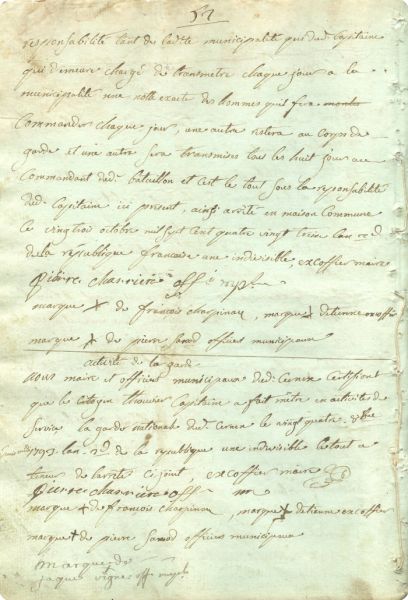 52
responsabilité tant de ladte municipalité que dud. Capitaine
qui d'emeure chargé de transmetre chaque jour a la
municipalité une notte exacte des hommes qu'il fera
Commander chaque jour, une autre restera au corps de
garde et une autre sera transmises tous les huit jour au
Commandant dud. bataillon et c'est le tout sous la responsabilité
dud. Capitaine ici présent, ainsi arrêté en maison Commune
le vingt trois octobre mil sept cent quatre vingt treize l'an 2d
de la république francoise une indivisible excoffier maire
pierre charrière off
marque + de francois charpinau, marque + d'etienne excoffier
marque + de pierre officiers municipaux
activité de la garde
nous maire et officiers municipaux dud. Cernex Certifiont
que le citoyen Capitaine a fait metre en activité de
Service la garde nationale dud. Cernex le vingt quatre 8bre
1793 l'an 2d de la république une indivisible le tout a
teneur de l'arrêté ci joint, excoffier maire
pierre charrière off
marque + de francois charpinau, marque + d'etienne excoffier
marque + de pierre officiers municipaux
marque de
jaques vignes off